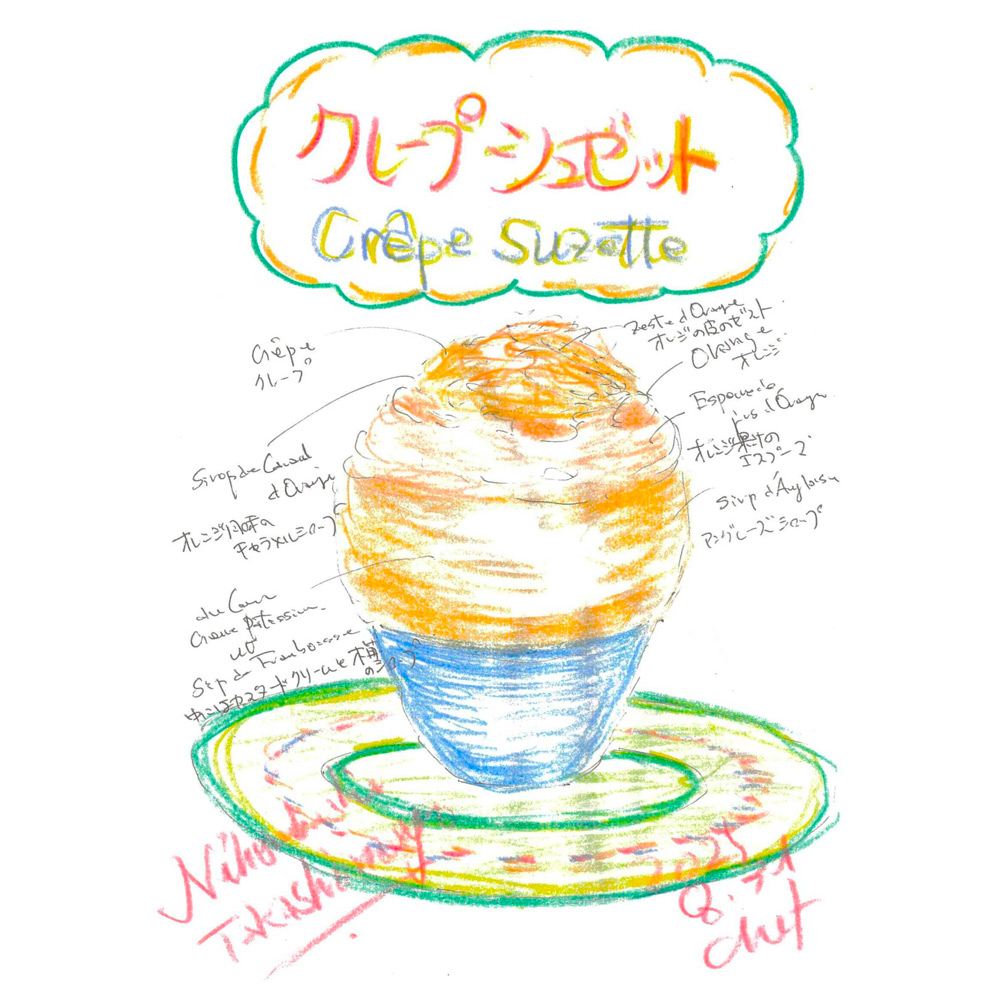 クレープシュゼット
Crêpe Suzette
Crêpe
クレープ
Sirop de
d'Orange
オレンジ風味の
キャラメルシロップ
Creme Patissiere
et
Sirop de Framboise
中にはカスタードクリームと木苺
のシロップ
Zeste d'Orange
オレンジの皮のゼスト
Orange
オレンジ
Espouma de
jus d'Orange
オレンジ果汁の
エスプーマ
Sirop d'Anglaise
アングレーズシロップ
Nihonbashi
Takashimaya
2025
Chef